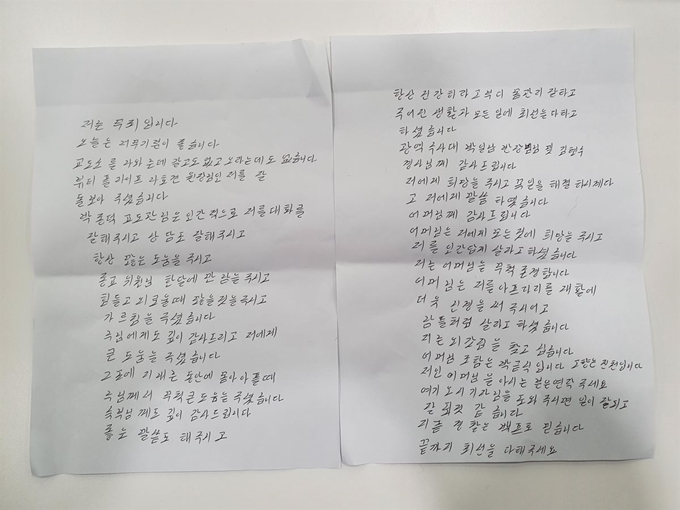 저는 무죄 입니다
오늘은 저무 기분이 좋습니다
교도소 를 나와는데 갈고도 없고 오라는데도 없습니다
뷰티 플 라이프 나호견 원장님인 저를 잘
돌보아 주셨습니다
박 종덕 교도관님은 인간 적으로 저를 대화를
잘해주시고 상 담도 잘해주시고
항상 많은 도움을 주시고
종교 위원님 한달에 한 번을 주시고
힘들고 외로울때 많을 것을주시고
가르침을 주셨습니다
수님에게도 깊이 감사드리고 저에게
큰 도움을 주셨습니다
교도에 지내는 동안에 돌아 아플때
수님께서 무척 큰 도움을 주셨습니다
숙부님 께도 깊이 감사드립니다
좋은 말씀도 해주시고
항상 인간이라고 부디 몸관리 잘하고
주어진 생활과 모든 일에 최선을 다하라고
하셨습니다
광역수사대 박일남 반장님 및 김현수
경사님께 감사드립니다
저에게 희망을 주시고 꼭 일을 해결 하시겠다
고 저에게 말씀 하셨습니다
어머님께 감사드립니다
어머님는 저에게 모든것에 희망을 주시고
저를 인간답게 살라고 하셨습니다
저는 어머님을 무척 존경합니다
어머 님은 저를 아프지리를 재활에
더욱 신경을 써 주시어고
남들처럼 살라고 하셨습니다
저는 외갓집을 찾고 싶습니다
어머님 존함은 박금식 입니다 고향은 진천입니다
저인 어머님을 아시는 분은 연락 주세요
여기 오시 기자님들 도와 주시면 일이 잘되고
잘 될것 같 습니다
지금 경찰은 백프로 믿습니다
끝까지 최선을 다해주세요